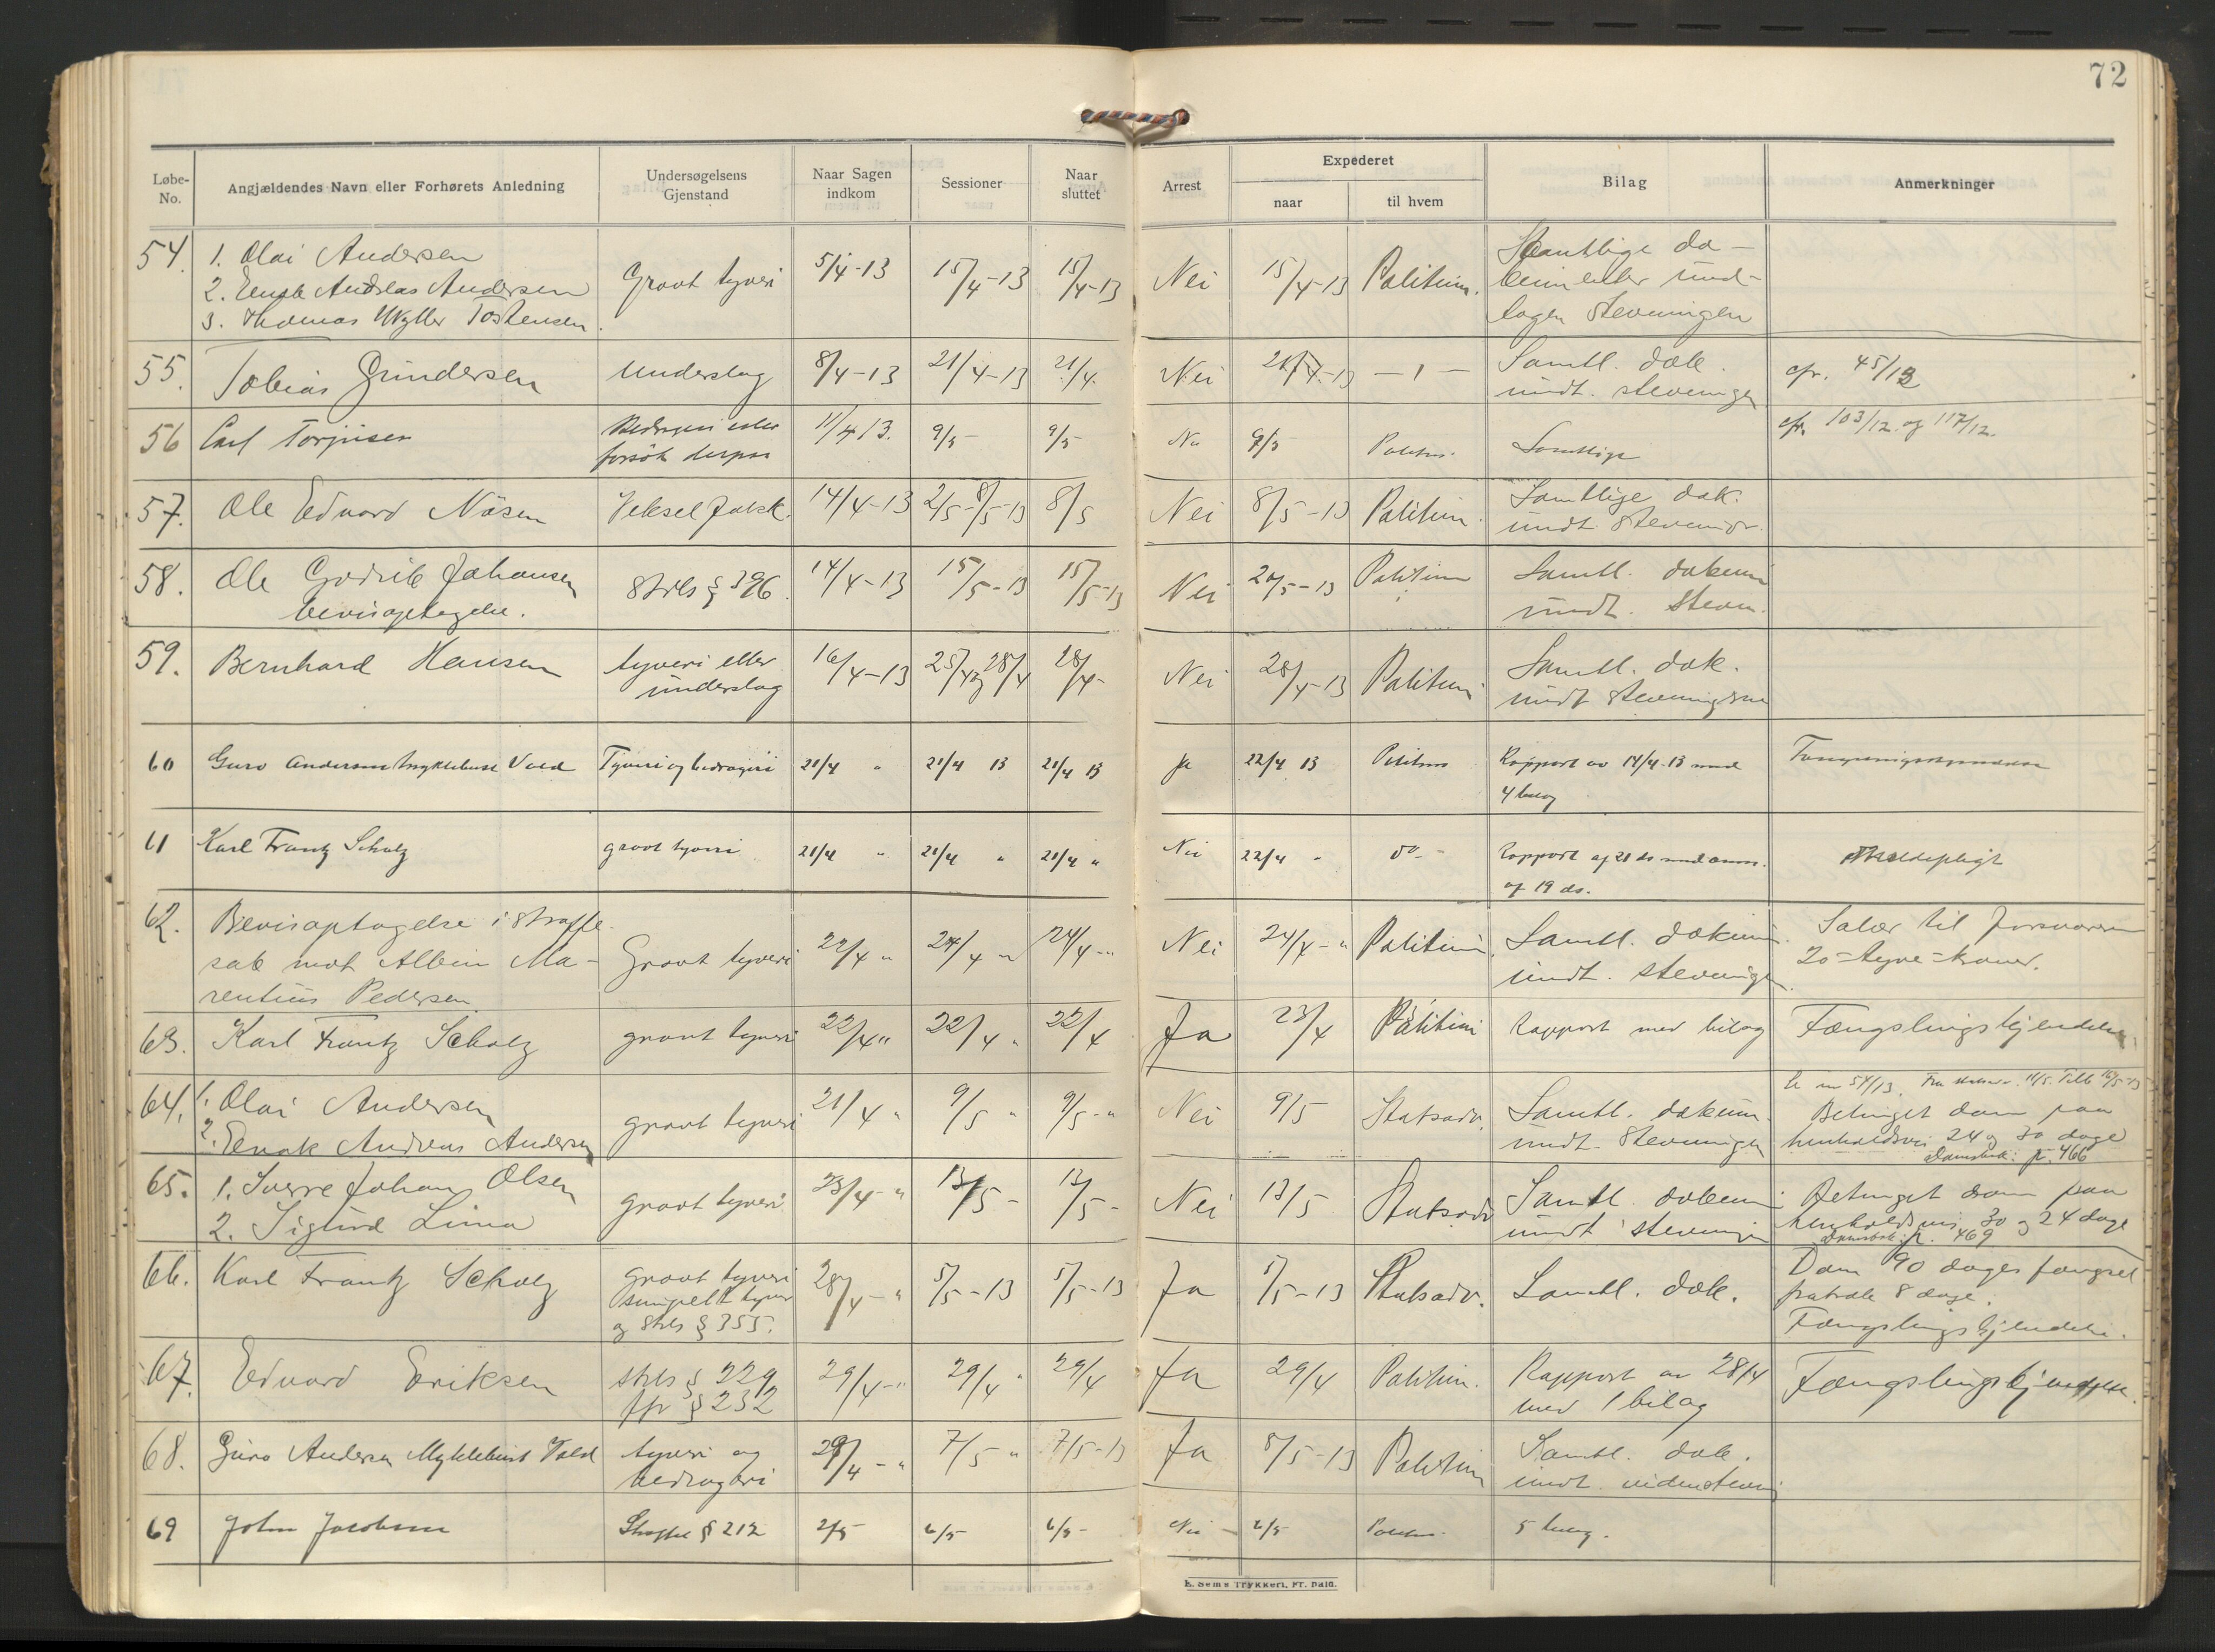 72
Løbe-No.
Angjældendes Navn eller Forhørets Anledning
Undersøgelsens Gjenstand
Naar Sagen indkom
Sessioner
Naar sluttet
Arrest
Expederet
naar
til hvem
Bilag
Anmerkninger
54. 1. Olai Andersen
2. Andreas Andersen
3. Thomas Tostensen.
Grovt tyveri 5/4-13 15/4-13 15/4-13 Nei 15/4-13 Politim. Samtlige do-
kumenter und-
tagen stevningen
55. Tobias Gundersen Underslag 8/4-13 21/4-13 21/4. Nei 21/4-13 — " — Samtl. dok.
undt. stevningen
cfr. 45/13
56 Carl Torjusen Bedrageri eller
forsök derpaa
11/4 13. 9/5- 9/5- Nei 9/5 Politim. Samtlige cfr. 103/12 og 117/12.
57. Ole Edvard Näsen Vekselfalsk. 14/4-13 2/5-8/5-13 8/5 Nei 8/5-13 Politim. Samtlige dok.
undt.
58. Ole Godrik Johansen
bevisoptagelse.
Strls § 396. 14/4-13 15/5-13 15/5-13 Nei 20/5-13 Politim Samtl. dokum
undt. stevn.
59. Bernhard Hansen tyveri eller
underslag
16/4-13 25/4 og 28/4 28/4- Nei 28/4-13 Politim Samtl. dok.
undt
60 Guro Andersen Myklebust Vold Tyveri og bedrageri 21/4 " 21/4 13 21/4 13 Ja 22/4 13 Politim Rapport av 19/4-13 med
4 bilag
61 Karl Frantz Scholz grovt tyveri 21/4 " 21/4 " 21/4 " Nei 22/4 " do - Rapport af 21 ds med
af 19 ds.
Meldepligt
62. Bevisoptagelse i straffe-
sak mot Albin Ma-
rentius Pedersen
Grovt tyveri 22/4 " 24/4 " 24/4 - " Nei 24/4 - " Politim. Samtl. dokum.
undt. stevningen.
Salær til forsvareren
20 = tyve = kroner.
63. Karl Frantz Scholz grovt tyveri 22/4 " 22/4 " 22/4 Ja 23/4 Politim Rapport med bilag Fængslingskjendelse.
64. 1. Olai Andersen
2. Andreas Andersen
grovt tyveri 21/4 " 9/5 " 9/5 - " Nei 9/5 Statsadv. Samtl. dokum.
undt. Stevningen
Betinget dom paa
henholdsvis 24 og 30 dage
Domsbok: p. 466
65. 1. Sverre Johan Olsen
2. Sigurd Lima
grovt tyveri 23/4 - " 13/5 - 13/5 - Nei 13/5 Statsadv Samtl. dokum
undt stevningen
Betinget dom paa
henholdsvis 30 og 24 dage
Domsbok: p. 469
66. Karl Frantz Scholz grovt tyveri
simpelt tyveri
og Strls § 355.
28/4 - " 5/5-13 5/5-13 Ja 5/5-13 Statsadv. Samtl. dok. Dom 90 dages fængsel
fratrok 8 dage.
Fængslingskjendelse.
67. Edvard Eriksen strls § 229
jfr § 232
29/4 - " 29/4 " 29/4 Ja 29/4 Politim. Rapport av 28/4
med 1 bilag
Fængslingskjendelse.
68. Guro Andersen Myklebust Vold tyveri og
bedrageri
29/4 - " 7/5 " 7/5-13 Ja 8/5-13 Politim Samtl. dok.
undt.
69 John Jacobsen § 212 2/5 6/5- 6/5- Nei - 6/5- Politim. 5 bilag.
E. Sems Trykkeri, Fr. hald.